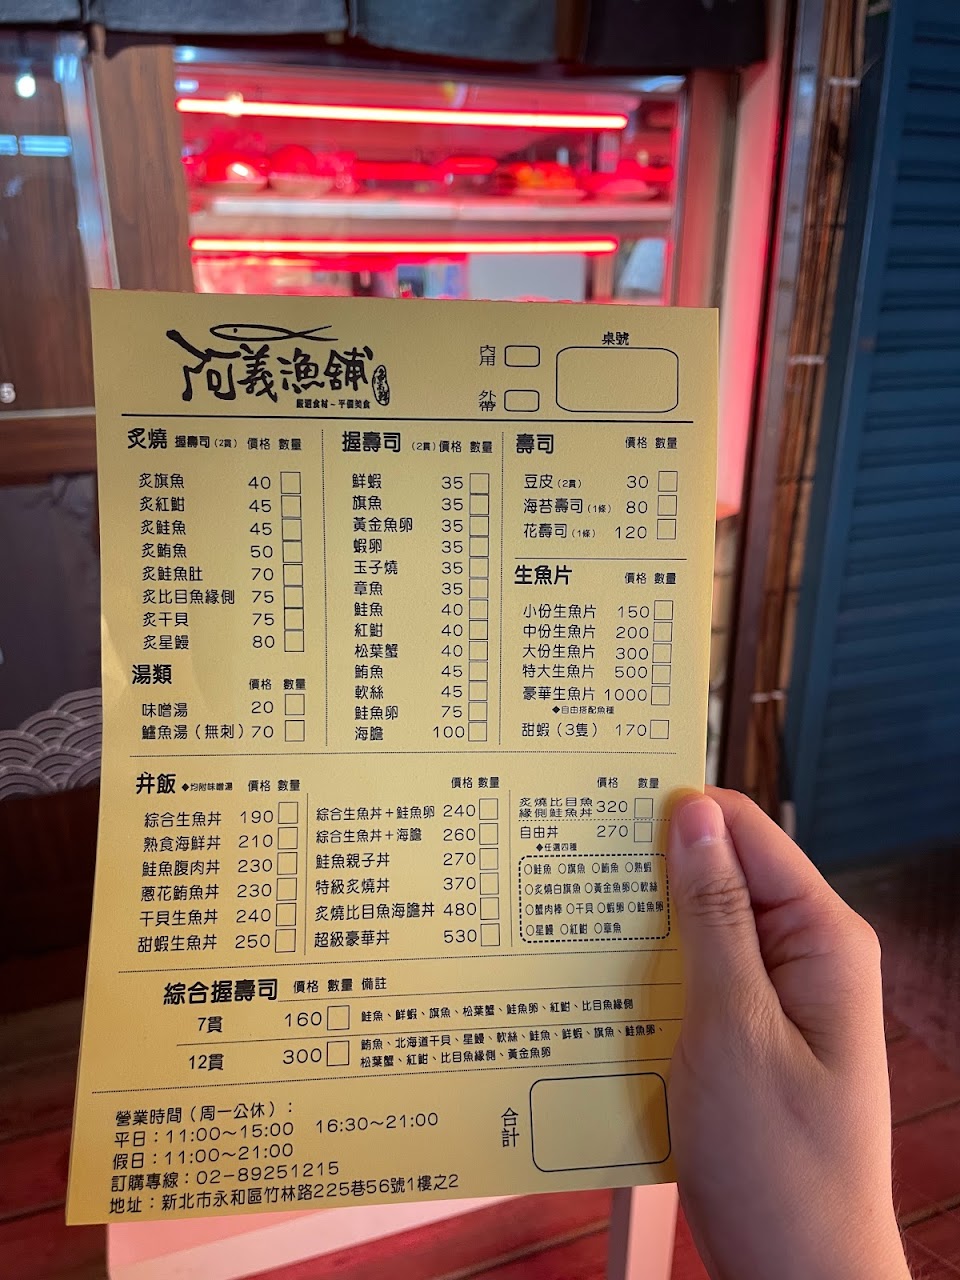 阿義漁舖
嚴選食材~平價美食
內用
外帶
桌號
炙燒 握壽司(2貫) 價格 數量
炙旗魚 40
炙紅魽 45
炙鮭魚 45
炙鮪魚 50
炙鮭魚肚 70
炙比目魚緣側 75
炙干貝 75
炙星鰻 80
湯類 價格 數量
味噌湯 20
鱸魚湯(無刺) 70
握壽司 (2貫) 價格 數量
鮮蝦 35
旗魚 35
黃金魚卵 35
蝦卵 35
玉子燒 35
章魚 35
鮭魚 40
紅魽 40
松葉蟹 40
鮪魚 45
軟絲 45
鮭魚卵 75
海膽 100
壽司 價格 數量
豆皮(2貫) 30
海苔壽司(1條) 80
花壽司(1條) 120
生魚片 價格 數量
小份生魚片 150
中份生魚片 200
大份生魚片 300
特大生魚片 500
豪華生魚片 1000
◆自由搭配魚種
甜蝦(3隻) 170
丼飯 ◆均附味噌湯 價格 數量
綜合生魚丼 190
熟食海鮮丼 210
鮭魚腹肉丼 230
蔥花鮪魚丼 230
干貝生魚丼 240
甜蝦生魚丼 250
價格 數量
綜合生魚丼+鮭魚卵 240
綜合生魚丼+海膽 260
鮭魚親子丼 270
特級炙燒丼 370
炙燒比目魚海膽丼 480
超級豪華丼 530
價格 數量
炙燒比目魚
緣側鮭魚丼 320
自由丼 270
◆任選四種
○鮭魚 ○旗魚 ○鮪魚 ○熟蝦
○炙燒白旗魚 ○黃金魚卵 ○軟絲
○蟹肉棒 ○干貝 ○蝦卵 ○鮭魚卵
○星鰻 ○紅魽 ○章魚
綜合握壽司 價格 數量 備註
7貫 160 鮭魚、鮮蝦、旗魚、松葉蟹、鮭魚卵、紅魽、比目魚緣側
12貫 300 鮪魚、北海道干貝、星鰻、軟絲、鮭魚、鮮蝦、旗魚、鮭魚卵、
松葉蟹、紅魽、比目魚緣側、黃金魚卵
營業時間(周一公休):
平日:11:00~15:00 16:30~21:00
假日:11:00~21:00
訂購專線:02-89251215
地址:新北市永和區竹林路225巷56號1樓之2
合計